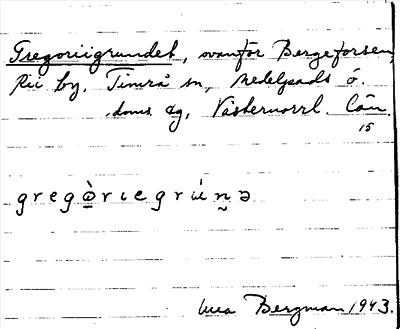 Gregoriigrundet, ovanför Bergeforsen,
by, Timrå sn, Medelpads ö.
doms. ag, Västernorrl. län.
15
gregò̱rıegrún̰ə
Bergman 1943.